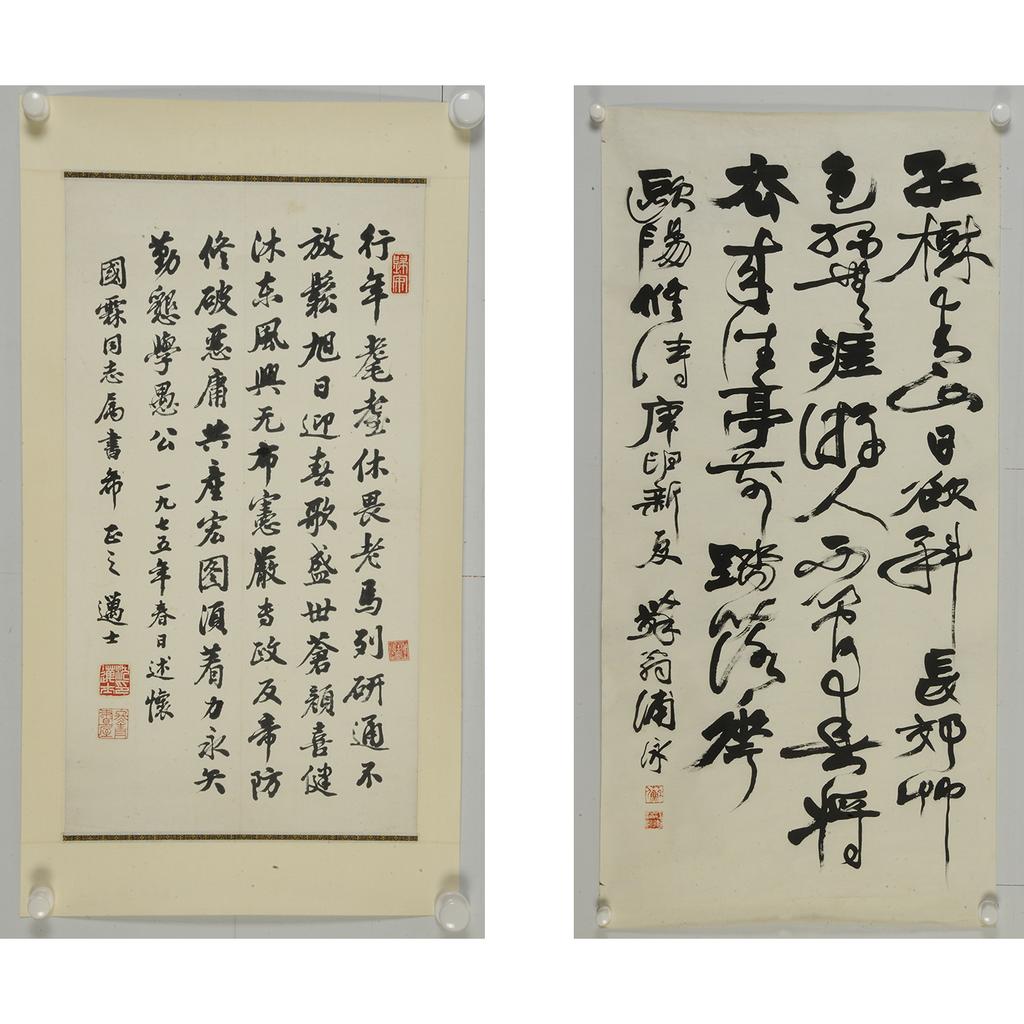 行年耄耋休畏老馬列研通不
放鬆旭日迎春歌盛世蒼顏喜健
沐东風興无布憲嚴专政反帝防
修破惡庸共産宏圖須着力永矢
勤懇學愚公 一九七五年春日述懷
國霖同志属書希 正之 邁士
紅樹青山日欲斜長郊艸
色綠無涯游人不管春將
老來往亭前踏落花
歐陽修詩 庚申新夏 蘇翁浦泳